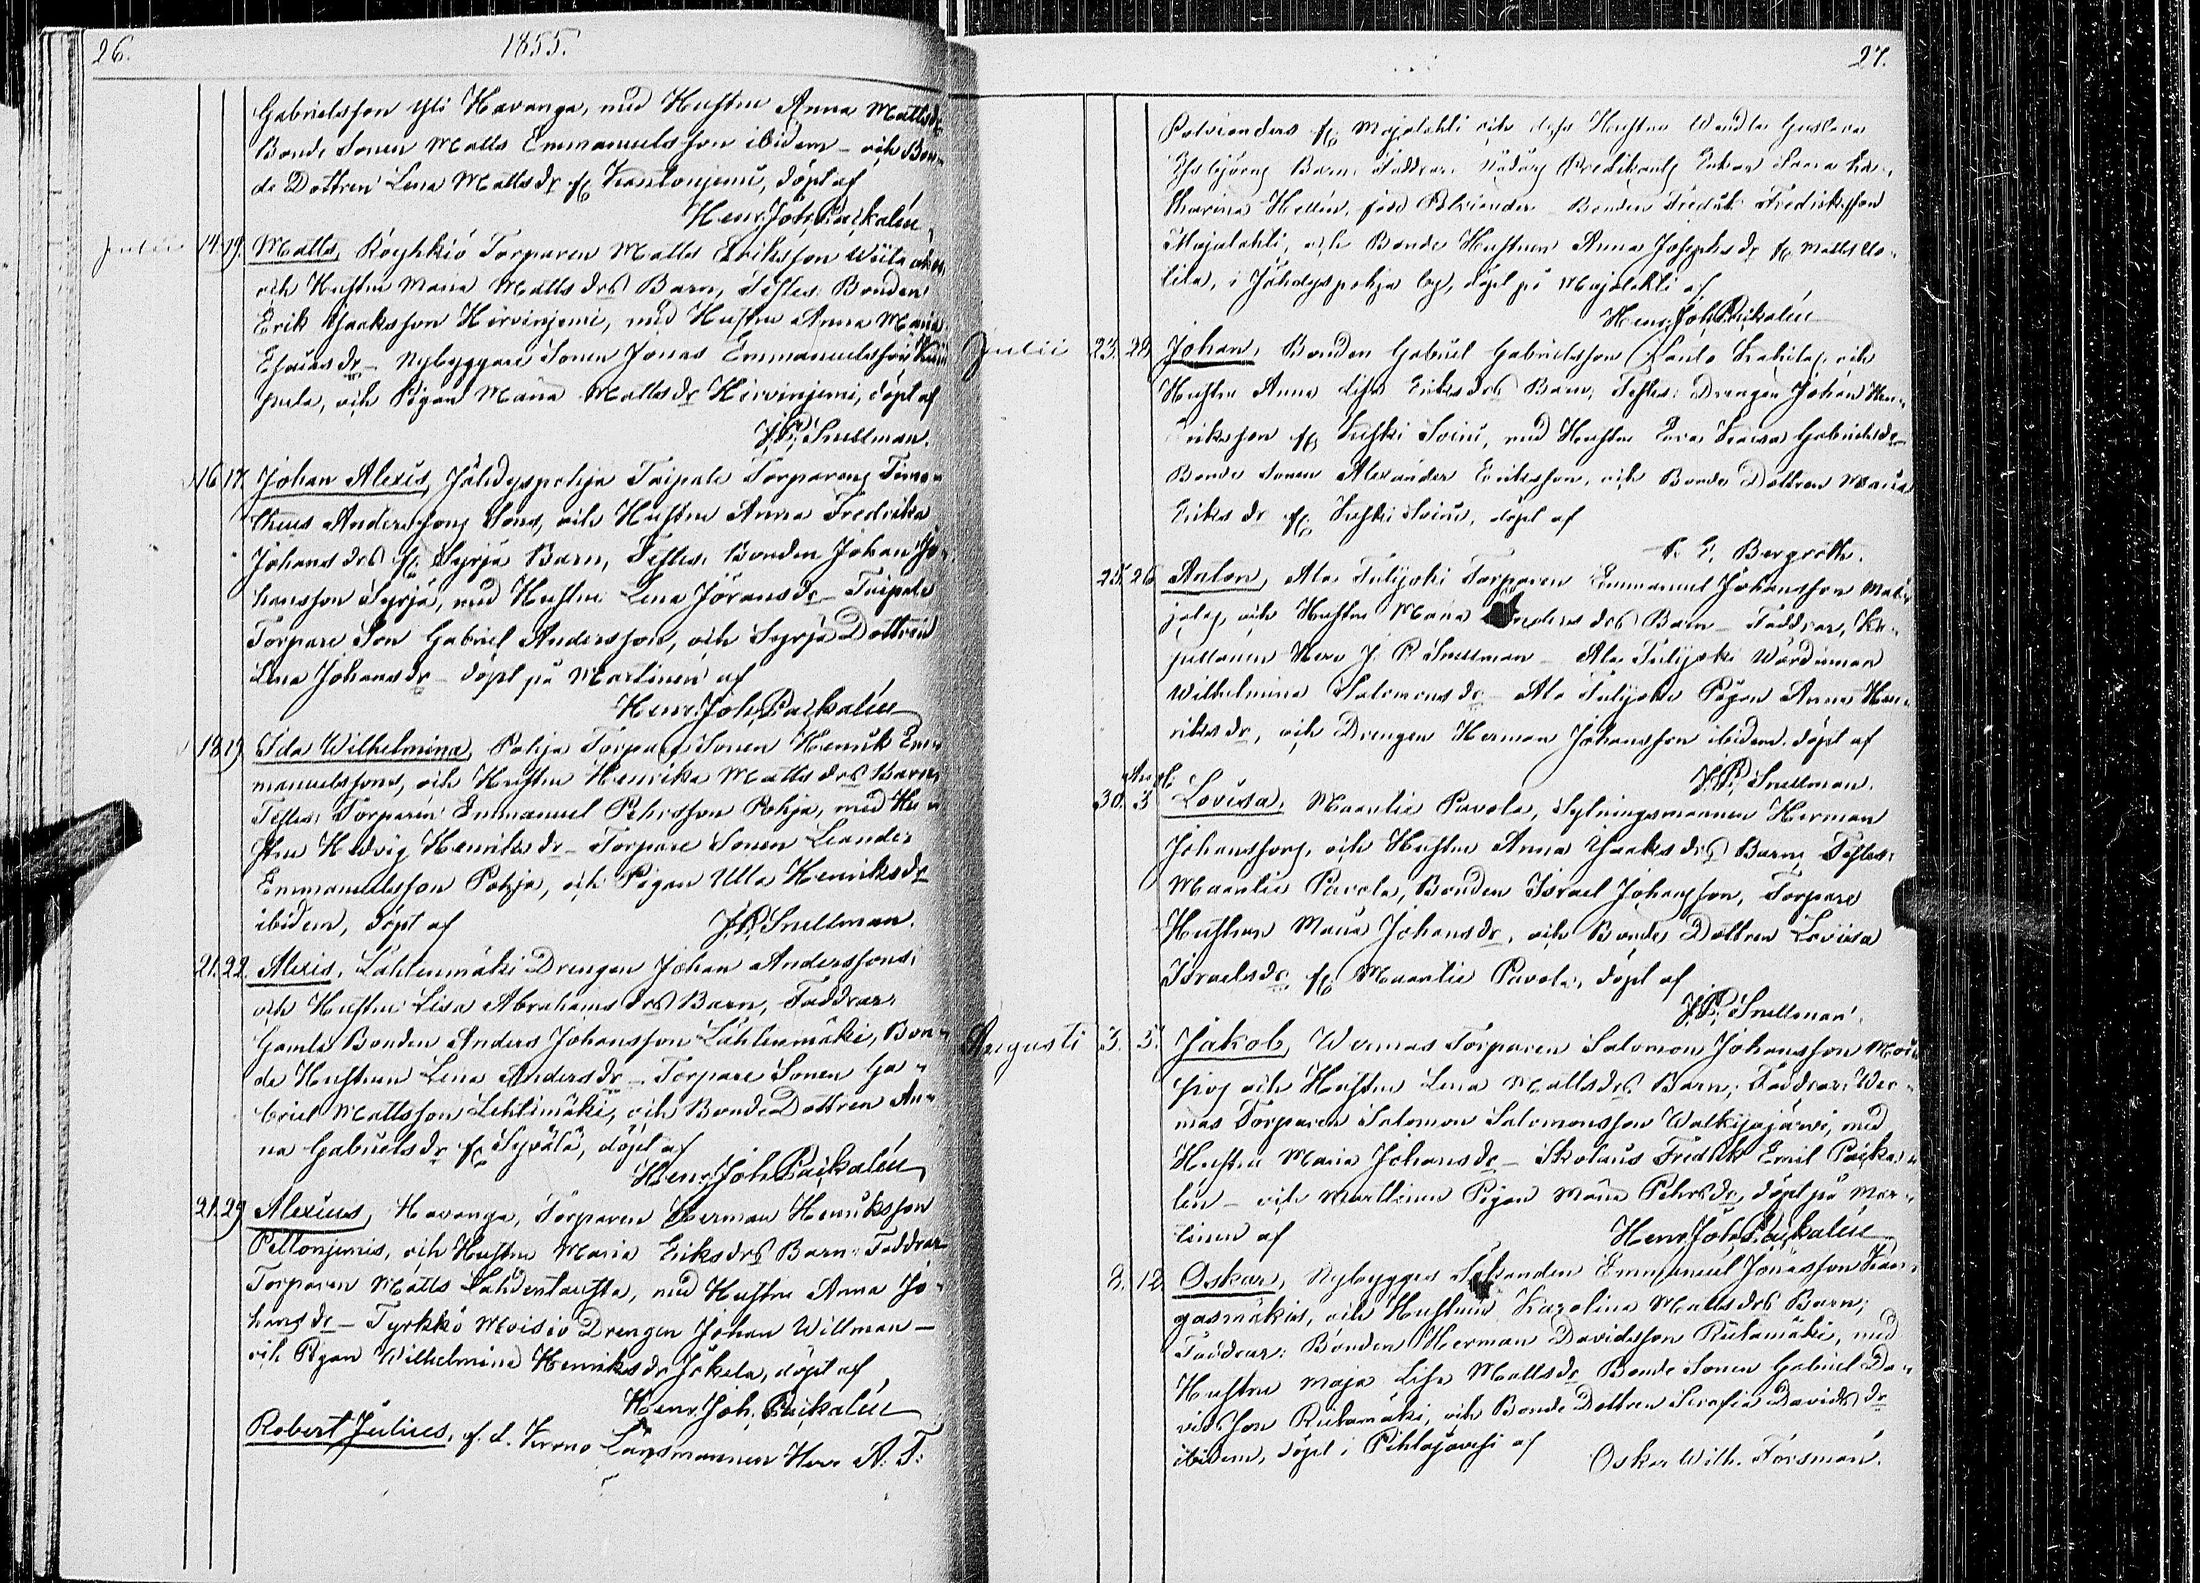 26. 1855.
Gabrielsson Yli Havanga, med Hustru Anna Mattsdr
Bonde Sonen Matts Emmanuelsson ibidem – och Bon-
de Dottren Lena Mattsdr fr. döpt af
Henr. Joh. Paikalén
Julii 14. 19. Matts, Röyhkiö Torparen Matts Eriksson
och Hustru Maria Mattsdrs Barn, Testes: Bonden
Erik Isaksson Hirvinjemi, med Hustru Anna Maria
Esaiasdr – Nybyggare Sonen Jonas Emmanuelsson
och Pigan Maria Mattsdr Hirvinjemi, döpt af
J. P. Snellman.
16. 17. Johan Alexis, Jähdyspohja Taipale Torparens Timo-
theus Anderssons Sons, och Hustru Anna Fredrika
Johansdrs fr. Syrjä Barn, Testes: Bonden Johan Jo-
hansson Syrjä, med Hustru Lena Jöransdr – Taipale
Torpare Son Gabriel Andersson, och Syrjä Dottren
Lina Johansdr – döpt på Martinen af
Henr. Joh. Paikalén
18. 19. Ida Wilhelmina, Pohja Torpare Sonen Henrik Em-
manuelssons, och Hustru Henrika Mattsdrs Barn
Testes: Torparen Emmanuel Pehrsson Pohja, med Hu-
stru Hedvig Henriksdr – Torpare Sonen Leander
Emmanuelsson Pohja, och Pigan Ulla Henriksdr
ibidem, döpt af J. P. Snellman.
21. 22. Alexis, Lahtenmäki Drengen Johan Anderssons,
och Hustru Lisa Abrahamsdrs Barn, Faddrar:
Gamla Bonden Anders Johansson Lahtenmäki, Bon-
de Hustrun Lena Andersdr – Torpare Sonen Ga-
briel Mattsson Lehtimäki, och Bonde Dottren An-
na Gabrielsdr fr. Syvälä, döpt af
Henr. Joh. Paikalén
21. 29. Alexius, Havanga, Torparen Herman Henriksson
Peltonjemis, och Hustru Maria Eriksdrs Barn. Faddrar
Torparen Matts Lahdentausta, med Hustru Anna Jo-
hansdr – Tyrkkö Moisio Drengen Johan Willman –
och Pigan Wilhelmina Henriksdr Jokela, döpt af
Henr. Joh. Paikalén
Robert Julius, f. d. Krono Länsmannen Herr A. F.
27.
Polvianders fr. Majalahti och dess Hustru Wendla Gustava
Barn. Faddrar: Predikants Enkan
tharina Hellén, född Polviander Bonden Fredrik Fredriksson
Majalahti, och Bonde Hustrun Anna Josephsdr fr. Matts Uo-
tila, i Jähdyspohja by, döpt på Majalahti af
Henr. Joh. Paikalén
Julii 23. 28. Johan, Bonden Gabriel Gabrielsson och
Hustru Anna Lisa Eriksdrs Barn, Testes: Drengen Johan Hen-
riksson fr. Soini, med Hustru Gabrielsdr
Bonde Sonen Alexander Eriksson, och Bonde Dottren Maria
Eriksdr fr. Soini, döpt af
Bergroth.
25. 26. Anton, Ala Tulijoki Torparen Emmanuel Johansson
och Hustru Maria drs Barn – Faddrar, Ka-
pellanen Herr J. P. Snellman – Ala Tulijoki Wärdinnan
Wilhelmina Salomonsdr – Ala Tulijoki Pigan Anna Hen-
riksdr, och Drengen Herman Johansson ibidem, döpt af
J. P. Snellman.
30. 3 Lovisa, Maantie Pavola, Sytningsmannen Herman
Johanssons, och Hustru Anna Isaksdrs Barn, Testes:
Maantie Pavola, Bonden Israel Johansson, Torpare
Hustrun Maria Johansdr, och Bonde Dottren Lovisa
Israelsdr fr. Maantie Pavola, döpt af
J. P. Snellman.
Augusti 3. 5. Jakob, Wermas Torparen Salomon Johansson
och Hustru Lena Mattsdrs Barn, Faddrar: Wer-
mas Torparen Salomon Salomonsson Walkijajärwi, med
Hustru Maria Johansdr – Skolaris Fredrik Emil Paika-
lén – och Marttinen Pigan Maria Pehrsdr, döpt på Mar-
tinen af Henr. Joh. Paikalén
8. 12 Oskar, Nybygges Emmanuel Jonasson
gasmäkis, och Hustrus Karolina Mattsdrs Barn;
Faddrar: Bonden Herman Davidsson Riitamäki, med
Hustru Maja Lisa Mattsdr Bonde Sonen Gabriel Da-
vidsson Riitamäki, och Bonde Dottren Serafia Davidsdr
ibidem, döpt i Pihlajavesi af Oskar Wilh. Forsman.